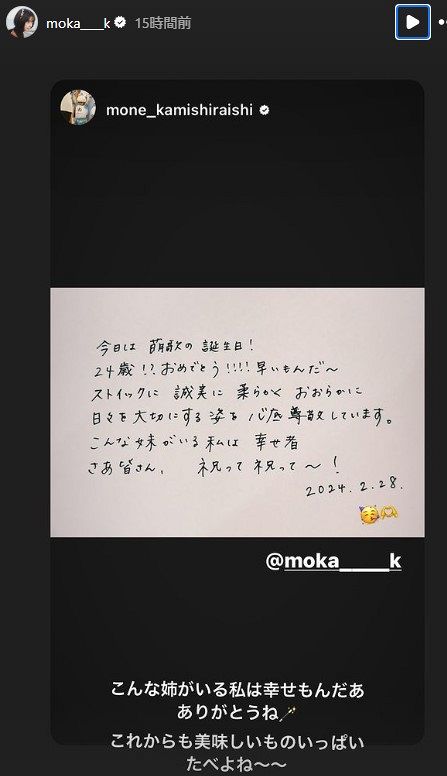 moka____k 15時間前
mone_kamishiraishi
今日は 萌歌の 誕生日!
24歳!? おめでとう!!!! 早いもんだ〜
ストイックに 誠実に 柔らかく おおらかに
日々を 大切にする 姿を 心底 尊敬しています。
こんな 妹が いる 私は 幸せ者
さあ 皆さん、 祝って 祝って〜!
2024.2.28.
@moka____k
こんな姉がいる私は幸せもんだあ
ありがとうね
これからも美味しいものいっぱい
たべよね〜〜